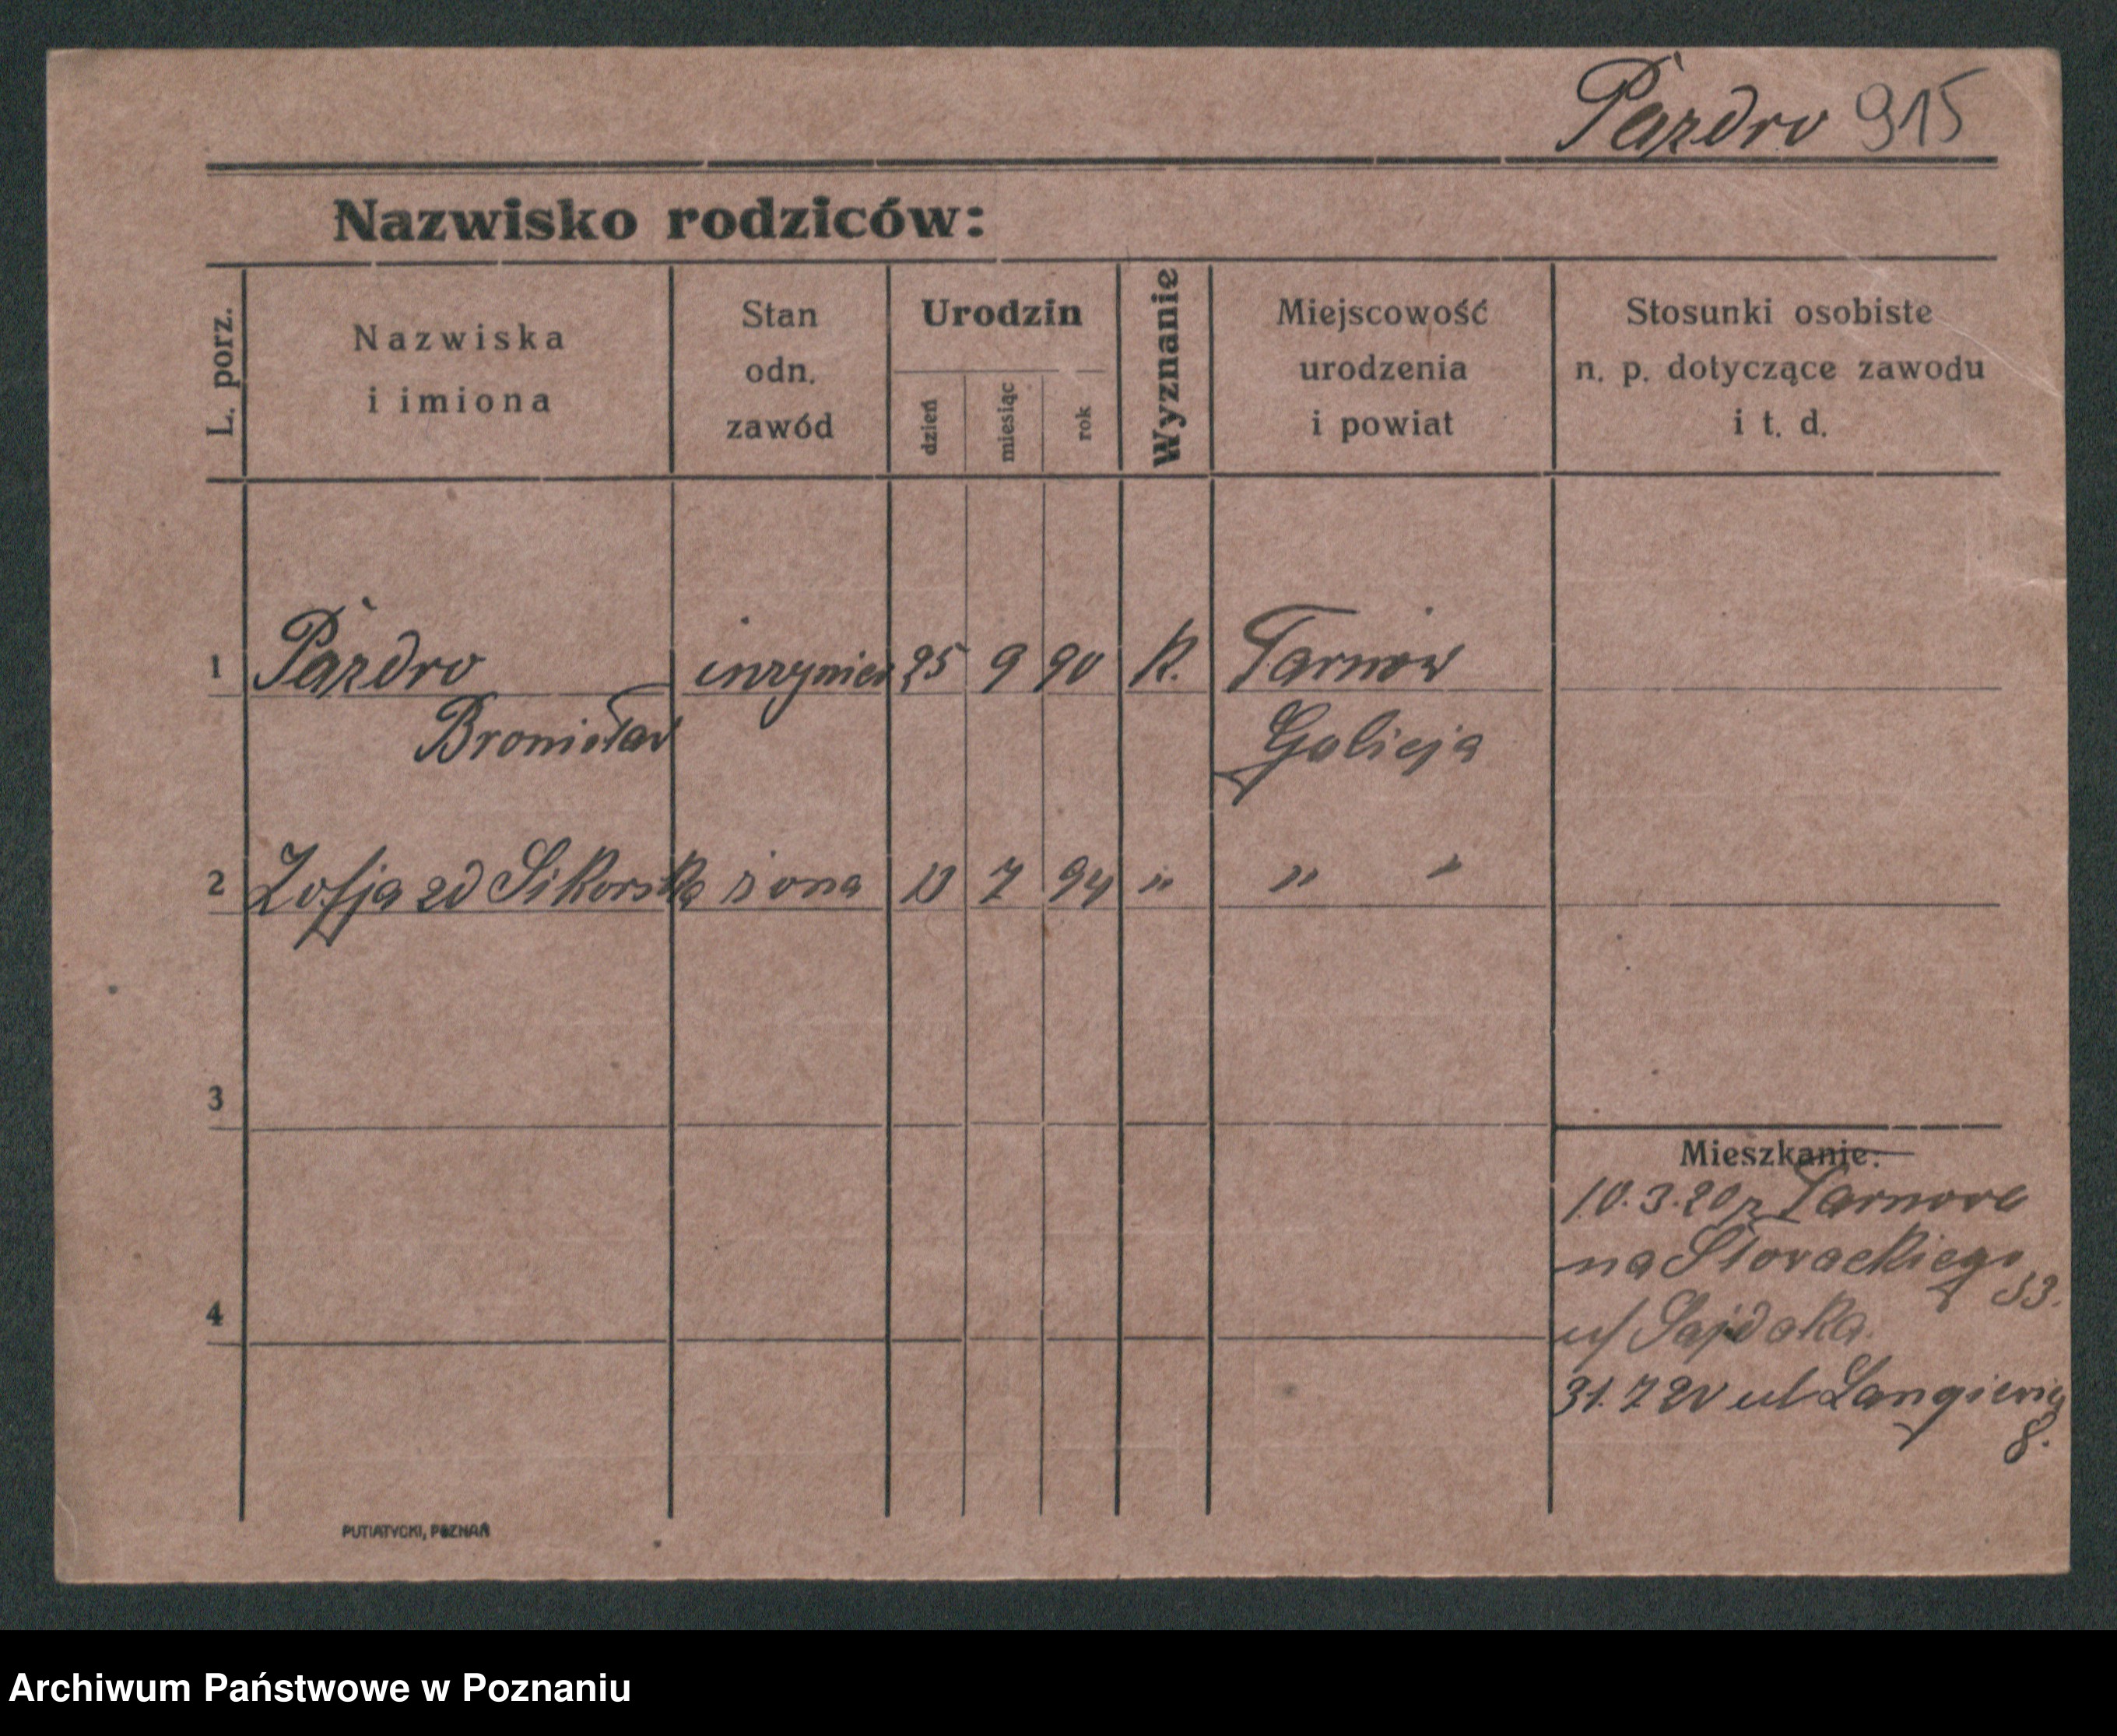 Pazdro 915
Nazwisko rodziców:
L. porz.
Nazwiska
i imiona
Stan
odn.
zawód
Urodzin
dzień
miesiąc
rok
Wyznanie
Miejscowość
urodzenia
i powiat
Stosunki osobiste
n. p. dotyczące zawodu
i t. d.
1 Pazdro inżynier 25 9 90 K. Tarnów
Bronisław Galicja
2 Zofja zd Sikorska żona 7 94 " " "
3
Mieszkanie:
10.3.20 z Tarnowa
na Słowackiego 33.
4
u/ Sajdaka
31.7 20 ul Langiewicz
8.
PUTIATYCKI, POZNAŃ
Archiwum Państwowe w Poznaniu